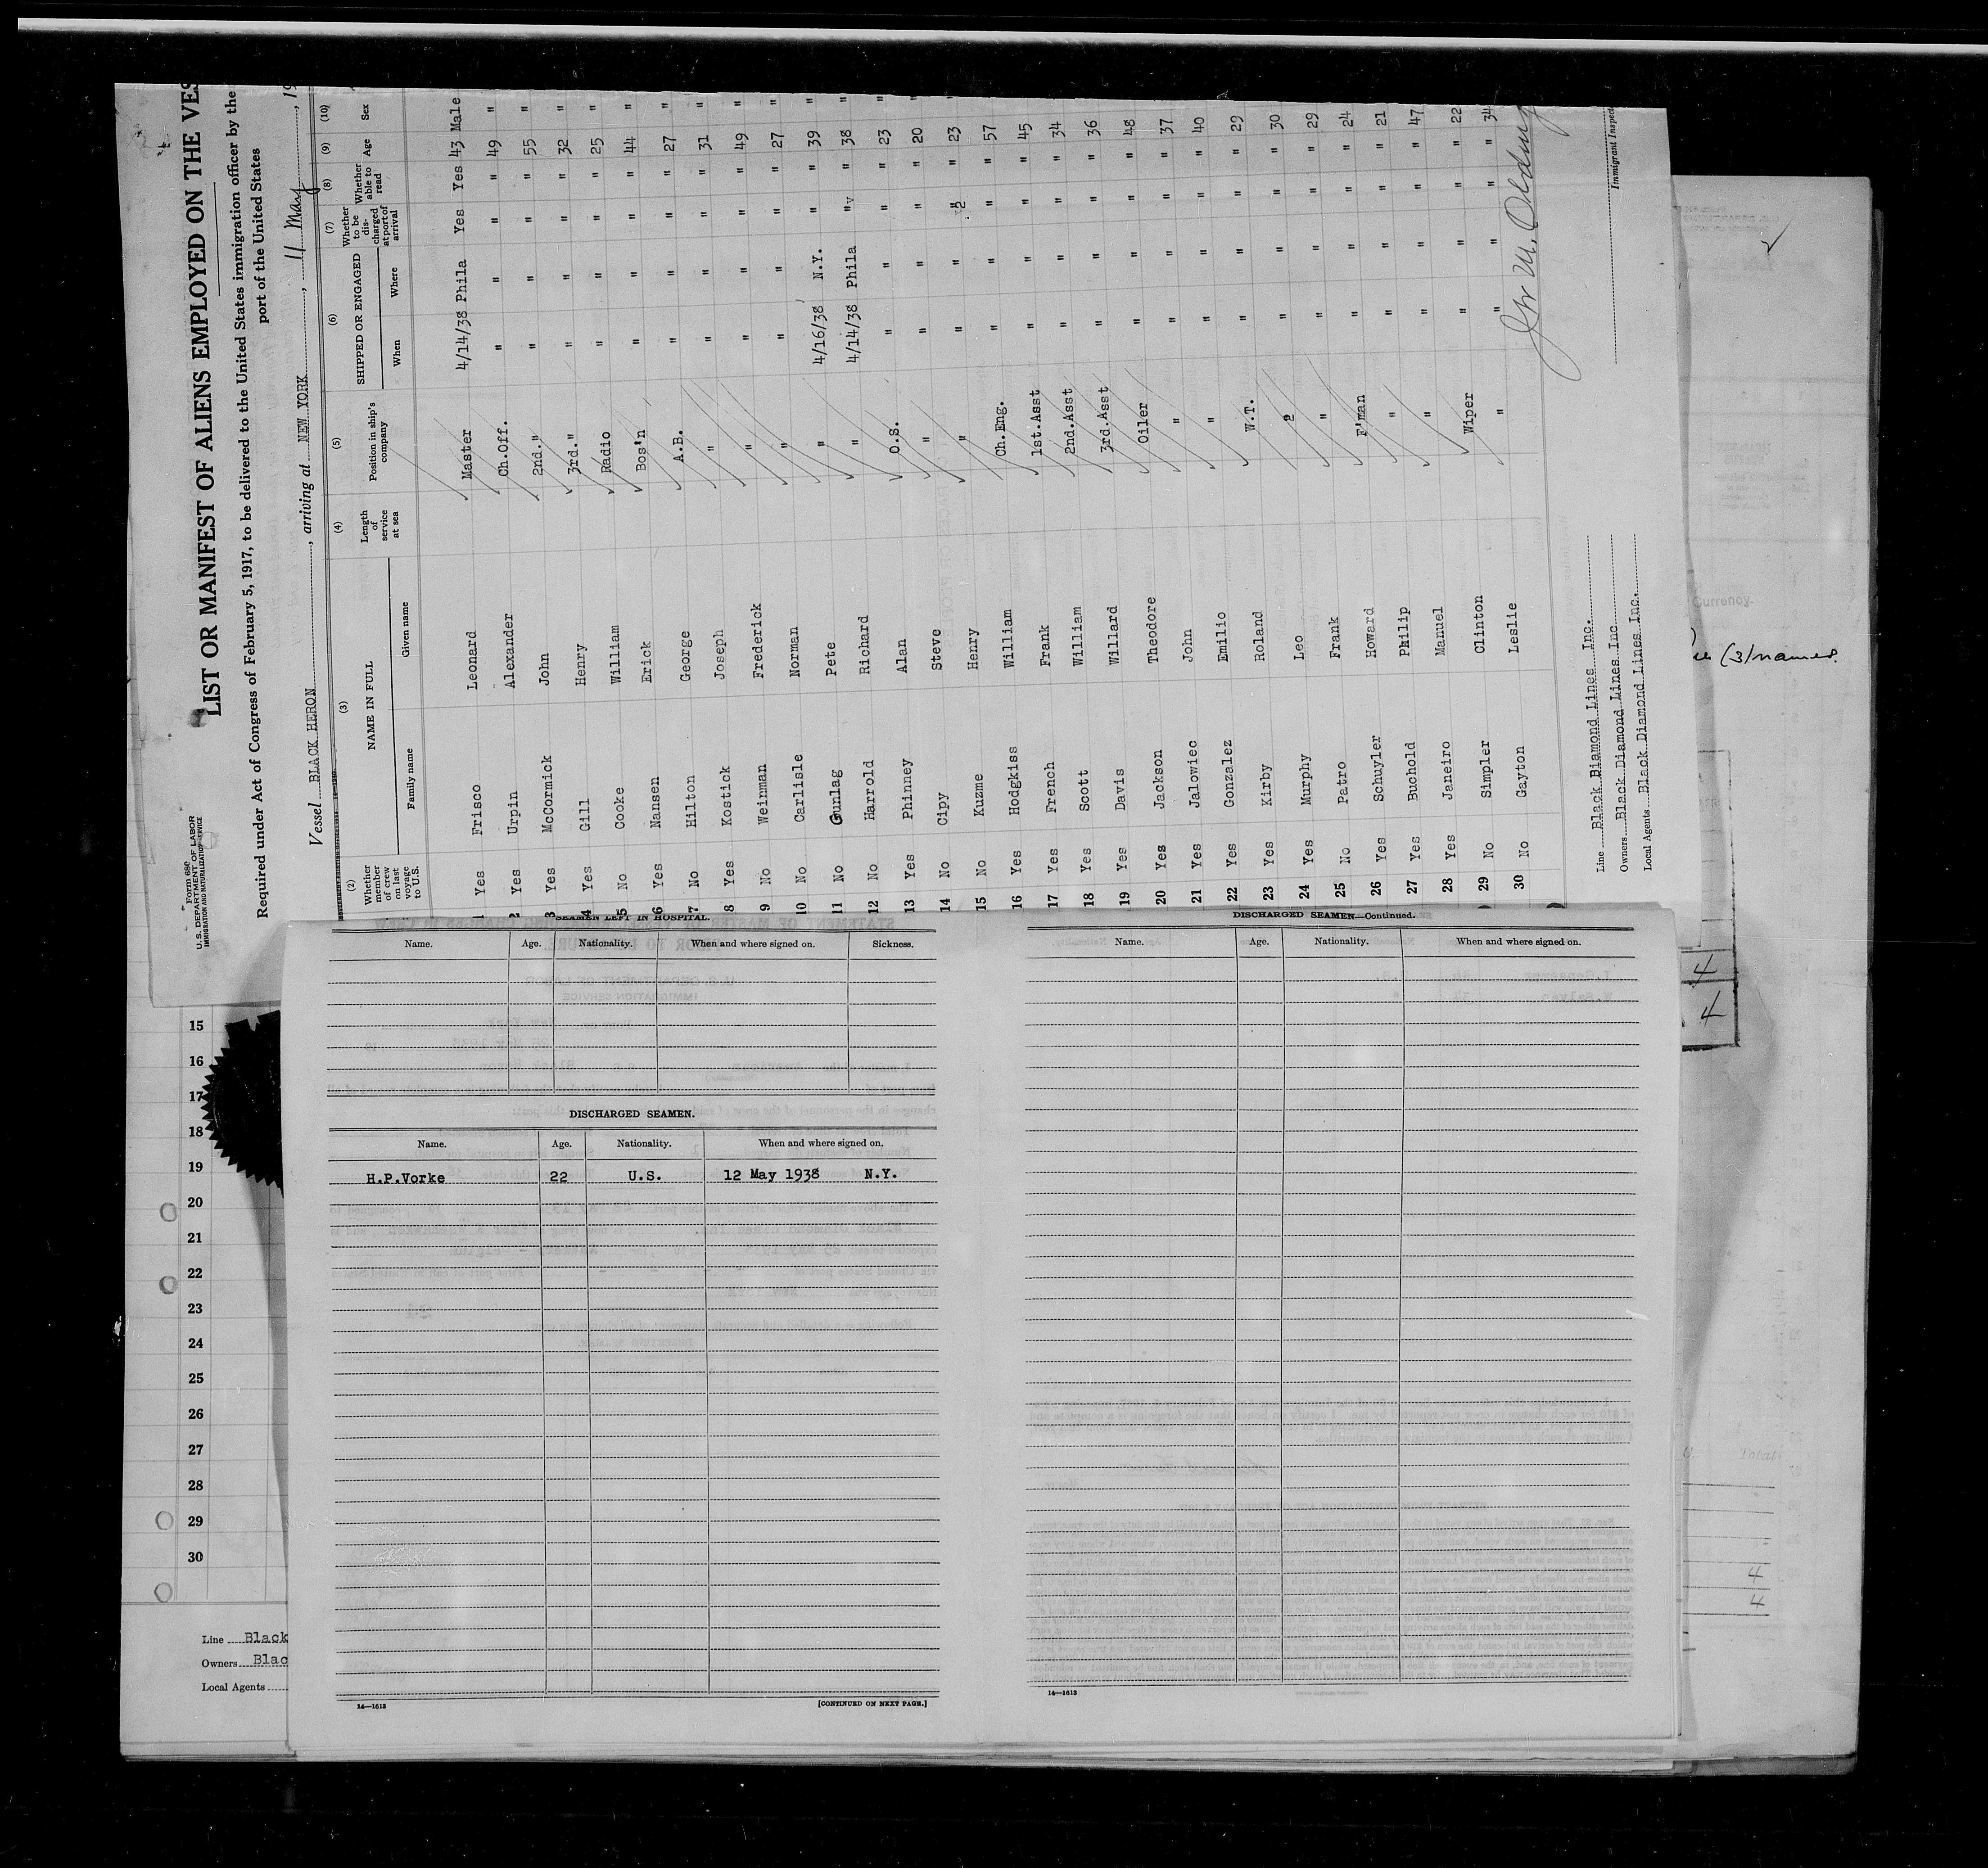 Form 689
U. S. DEPARTMENT OF LABOR
IMMIGRATION AND NATURALIZATION SERVICE
LIST OR MANIFEST OF ALIENS EMPLOYED ON THE VES
Required under Act of Congress of February 5, 1917, to be delivered to the United States immigration officer by the
port of the United States
Vessel BLACK HERON, arriving at NEW YORK, 11 May, 19
(2) (3) (4) (5) (6) (7) (8) (9) (10)
Whether member of crew on last voyage to U.S. NAME IN FULL Family name Given name Length of service at sea Position in ship's company SHIPPED OR ENGAGED When Where Whether to be discharged at port of arrival Whether able to read Age Sex
1 Yes Frisco Leonard Master 4/14/38 Phila Yes Yes 43 Male
2 Yes Urpin Alexander Ch.Off. " " " " 49 "
3 Yes McCormick John 2nd." " " " " 55 "
4 Yes Gill Henry 3rd." " " " " 32 "
5 No Cooke William Radio " " " " 25 "
6 Yes Nansen Erick Bos'n " " " " 44 "
7 No Hilton George A.B. " " " " 27 "
8 Yes Kostick Joseph " " " " " 31 "
9 No Weinman Frederick " " " " " 49 "
10 No Carlisle Norman " " " " " 27 "
11 No Gunlag Pete " 4/16/38 N.Y. " " 39 "
12 No Harrold Richard " 4/14/38 Phila " " 38 "
13 Yes Phinney Alan O.S. " " " " 23 "
14 No Cipy Steve " " " " " 20 "
15 No Kuzme Henry " " " " " 23 "
16 Yes Hodgkiss William Ch.Eng. " " " " 57
17 Yes French Frank 1st.Asst " " " " 45
18 Yes Scott William 2nd.Asst " " " " 34
19 Yes Davis Willard 3rd.Asst " " " " 36
20 Yes Jackson Theodore Oiler " " " " 48
21 Yes Jalowiec John " " " " " 37
22 Yes Gonzalez Emilio " " " " " 40
23 Yes Kirby Roland W.T. " " " " 29
24 Yes Murphy Leo " " " " 30
25 No Patro Frank " " " " " 29
26 Yes Schuyler Howard F'man " " " " 24
27 Yes Buchold Philip " " " " " 21
28 Yes Janeiro Manuel " " " " " 47
29 No Simpler Clinton Wiper " " " " 22
30 No Gayton Leslie " " " " " 34
Line Black Diamond Lines Inc.
Owners Black Diamond Lines Inc
Local Agents Black Diamond Lines Inc.
Immigrant Inspec
SEAMEN LEFT IN HOSPITAL.
Name. Age. Nationality. When and where signed on. Sickness.
DISCHARGED SEAMEN.
Name. Age. Nationality. When and where signed on.
H.P.Vorke 22 U.S. 12 May 1938 N.Y.
14—1613
[CONTINUED ON NEXT PAGE.]
DISCHARGED SEAMEN—Continued.
Name. Age. Nationality. When and where signed on.
14—1613
15
16
17
18
19
20
21
22
23
24
25
26
27
28
29
30
Line Black
Owners Blac
Local Agents
Currency.
(3) names.
4
4
Total
4
4